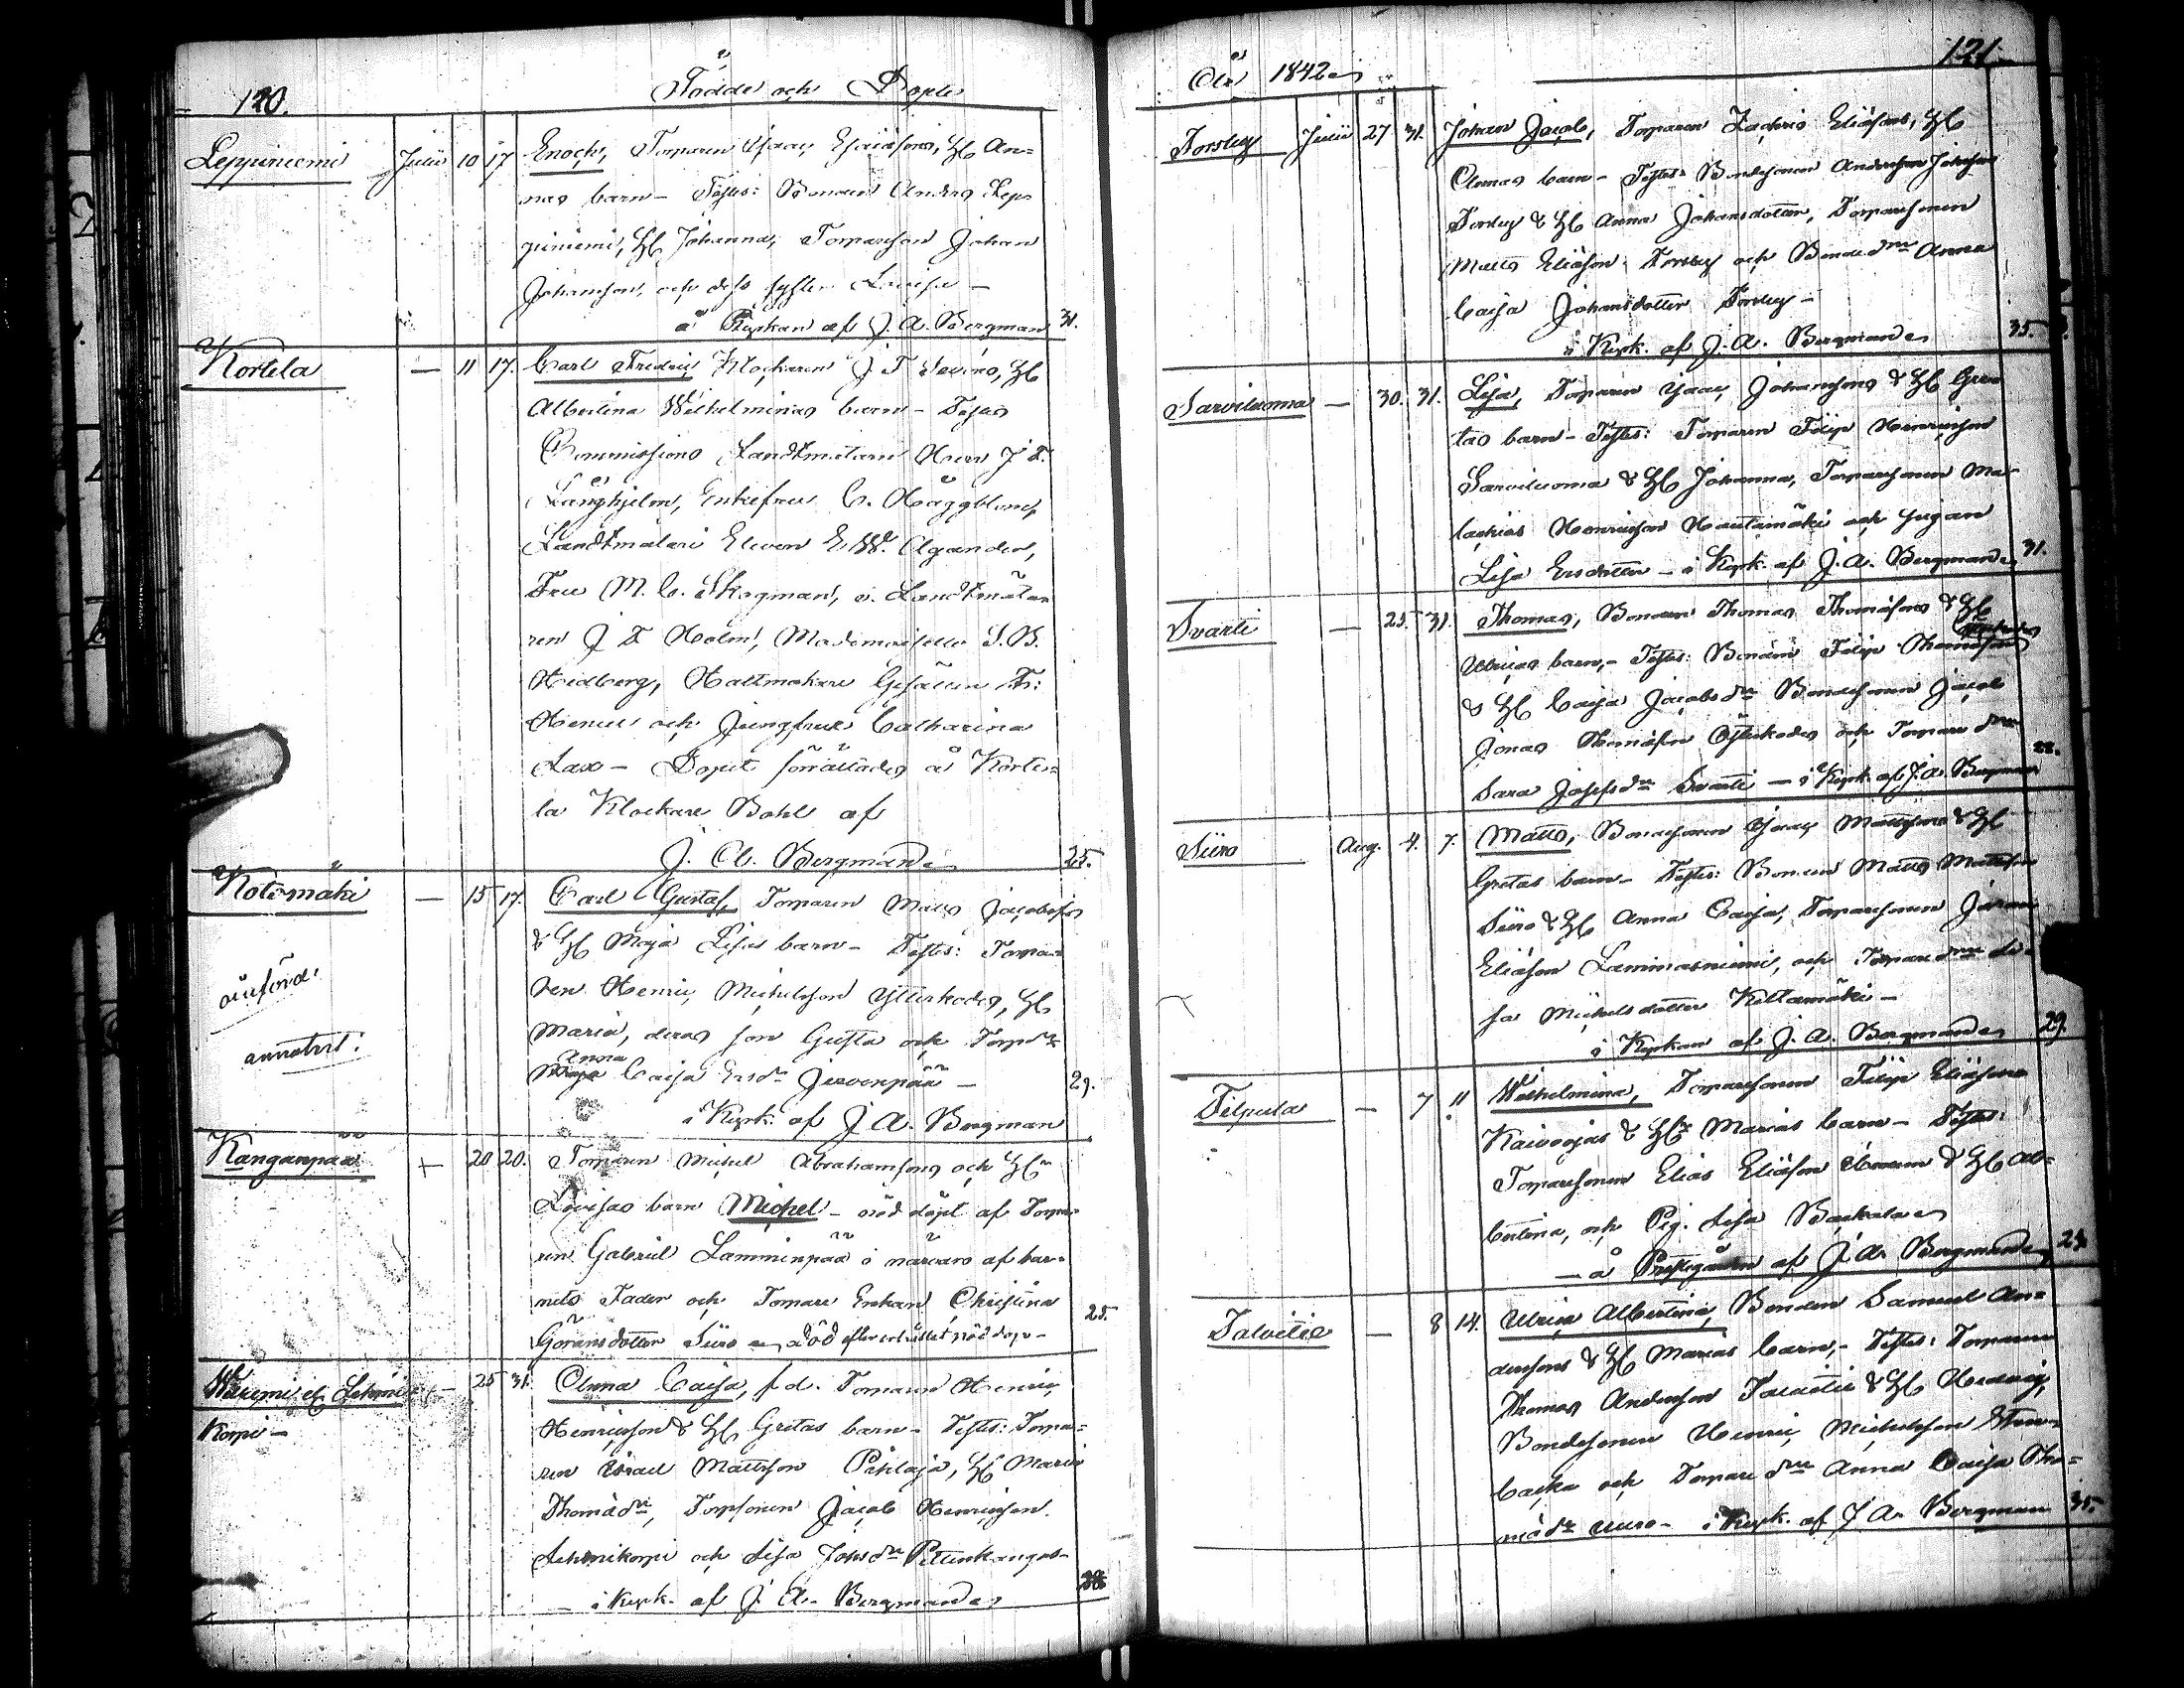 120.
Födde och Döpte
Leppiniemi Julii 10 17 Enoch, Torparen Isaac Esaiasons, H. An=
nas barn – Testes: Bonden Anders Lep=
piniemi, H. Johanna, Torpareson Johan
Johanson, och dess syster Lovisa –
å Kyrkan af J. A. Bergman 31.
Kortela — 11 17. Carl Fredric, Klockaren J. F.
Albertina Wilhelminas barn – Testes
Commissions Landtmätarn Herr J. F.
Långhjelm, Enkefru C. Häggblom,
Landtmäteri Eleven E. W. Agander,
Fru M. C. Skogman, v. Landtmäta=
ren J F Holm, Mademoiselle S. B.
Hedberg, Hattmakare Gesällen Fr:
och Jungfru Catharina
Lax – Dopet förrättades å Korte=
la Klockare Bohl af
J. A. Bergman 25.
Kotomäki — 15 17. Carl Gustaf, Torparen Matts Jacobsons
& H. Maja Lisas barn – Testes: Torpa=
ren Henric Michelsson Ytterkoder, H.
Maria, deras son Gusta och Torpdr
Anna
Maja Caisa Ersdr Jervenpää –
i Kyrk. af J A. Bergman 29.
annoterd.
Kanganpää + 20 20. Torparen Michel Abrahamsons och H.
Lovisas barn Michel – nöd döpt af Torpa=
ren Gabriel Lamminpää i närvaro af bar=
nets Fader och Torpare Enkan Christina
Göransdotter Siiro – död efter erhållet nöddop – 25.
Waremi el. Lehmi= — 25 31. Anna Caisa, f.d. Torparen Henric
Korpi – Henricsson & H. Gretas barn – Testes: Torpa=
ren Israel Mattsson Pihlaja, H. Maria
Thomädr, Torpsonen Jacob Henricson
Lehmikorpi och Lisa Johsdr Pettenkangas –
– i Kyrk. af J. A. Bergman
År 1842
121.
Forsby Julii 27 31. Johan Jacob, Torparen Zachris Eliäsons, H.
Annas barn – Testes: Bondesonen Anderson Johan
Forsby & H. Anna Johansdotter, Torparesonen
Matts Eliäson Forsby och Bondedr Anna
Caisa Johansdotter Forsby –
i Kyrk. af J. A. Bergman 35.
Sarviluoma — 30. 31. Lisa, Torparen Isaac Johansons & H. Gre=
tas barn – Testes: Torparen Filip Henricson
Sarviluoma & H. Johanna, Torparesonen Ma=
lachias Henricson Hautamäki och pigan
Lisa Ersdotter – i Kyrk. af J. A. Bergman 31.
Svarti — 25. 31. Thomas, Bonden Thomas Thomäsons & H.
Ulricas barn, – Testes: Bonden Filip Thomäson
& H. Caisa Jacobsdr Bondesonen Jacob
Jonas Thomäson Ytterkoder och Torpare dr
Sara Josefsdr Svarti — i Kyrk. af J. A. Bergman
Siiro Aug. 4. 7. Matts, Bondesonen Isaac Mattssons & H.
Gretas barn – Testes: Bonden Matts Mattsson
Siiro & H. Anna Caisa, Torparesonen Göran
Eliäson Lammasniemi, och Torpare dr Li=
sa Michelsdotter Kiltamäki –
i Kyrkan af J. A. Bergman 29.
Filpula — 7 11 Wilhelmina, Torparesonen Filip Eliäsons
Kaivoojas & H. Marias barn – Testes:
Torparesonen Elias Eliäson & H. Al=
bertina, och Pig. Lisa
— å Prestgården af J. A. Bergman
Talvitie — 8 14. Ulrica Albertina, Bonden Samuel An=
derssons & H. Marias barn, – Testes: Torparen
Thomas Anderson Talvitie & H. Hedvig,
Bondesonen Henric Michelsson
backa och Torpare dr Anna Caisa Tho=
mädr – i Kyrk. af J A. Bergman 35.